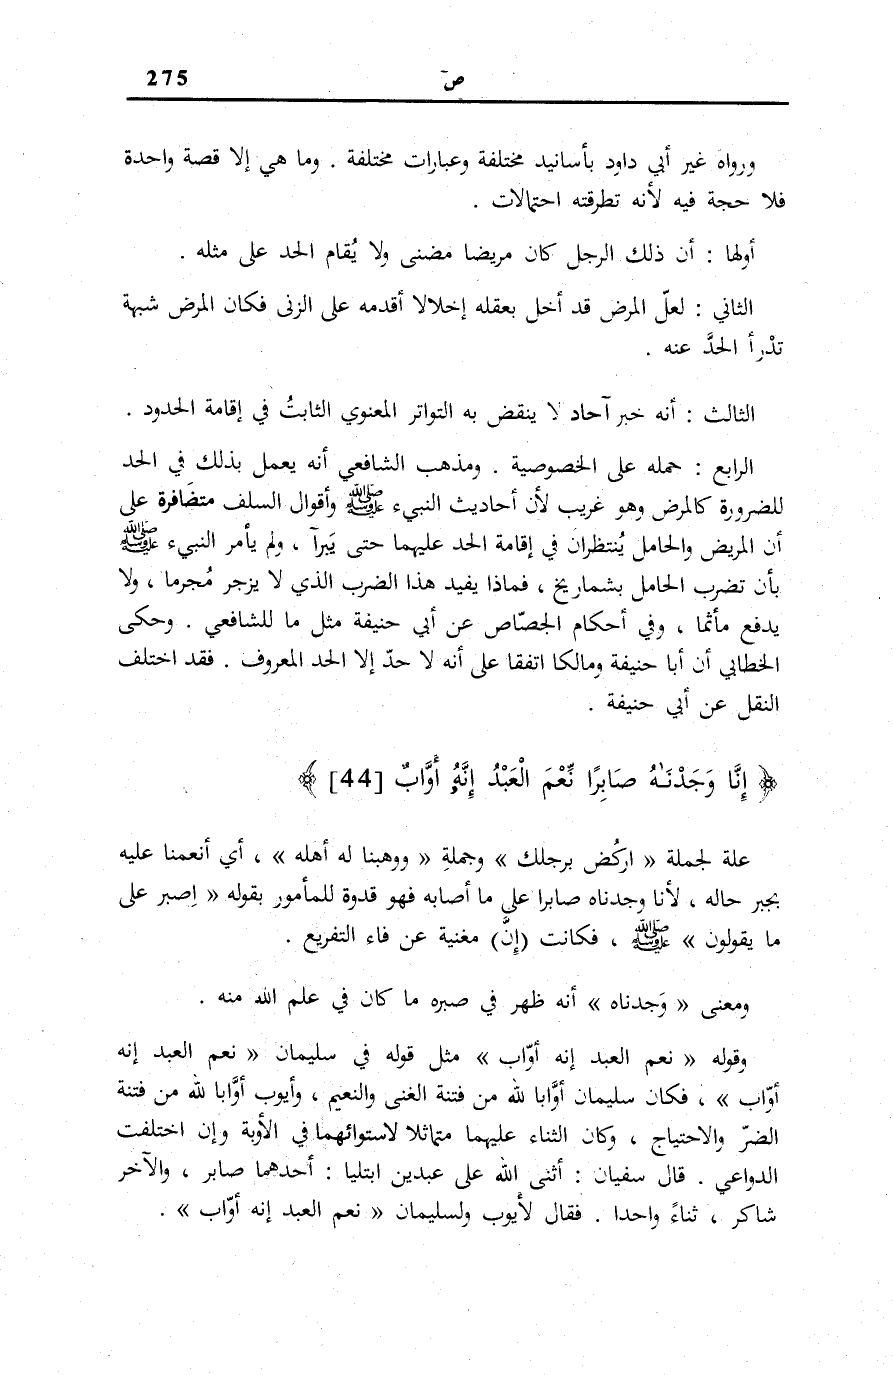 275 صۤ
ورواه غير أبي داود بأسانيد مختلفة وعبارات مختلفة . وما هي إلا قصة واحدة
فلا حجة فيه لأنه تطرقته احتمالات .
أولها : أن ذلك الرجل كان مريضا مضنى ولا يُقام الحد على مثله .
الثاني : لعلّ المرض قد أخل بعقله إخلالا أقدمه على الزنى فكان المرض شبهة
تدْرأ الحدَّ عنه .
الثالث : أنه خبر آحاد لا ينقض به التواتر المعنوي الثابتُ في إقامة الحدود .
الرابع : حمله على الخصوصية . ومذهب الشافعي أنه يعمل بذلك في الحد
للضرورة كالمرض وهو غريب لأن أحاديث النبيء ﷺ وأقوال السلف متضَافرة على
أن المريض والحامل يُنتظران في إقامة الحد عليهما حتى يَبرآ ، ولم يأمر النبيء ﷺ
بأن تضرب الحامل بشماريخ ، فماذا يفيد هذا الضرب الذي لا يزجر مُجرما ، ولا
يدفع مأثما ، وفي أحكام الجصّاص عن أبي حنيفة مثل ما للشافعي . وحكى
الخطابي أن أبا حنيفة ومالكا اتفقا على أنه لا حدّ إلا الحد المعروف . فقد اختلف
النقل عن أبي حنيفة .
﴿ إِنَّا وَجَدْنَـٰهُ صَابِرًا نِّعْمَ الْعَبْدُ إِنَّهُۥ أَوَّابٌ [44] ﴾
علة لجملة « اركُض برجلك » وجملةِ « ووهبنا له أهله » ، أي أنعمنا عليه
بجبر حاله ، لأنا وجدناه صابرا على ما أصابه فهو قدوة للمأمور بقوله « إصبر على
ما يقولون » ﷺ ، فكانت (إنَّ) مغنية عن فاء التفريع .
ومعنى « وَجدناه » أنه ظهر في صبره ما كان في علم الله منه .
وقوله « نعم العبد إنه أوّاب » مثل قوله في سليمان « نعم العبد إنه
أوّاب » ، فكان سليمان أوَّابا لله من فتنة الغنى والنعيم ، وأيوب أوَّابا لله من فتنة
الضرّ والاحتياج ، وكان الثناء عليهما متماثلا لاستوائهما في الأوبة وإن اختلفت
الدواعي . قال سفيان : أثنى الله على عبدين ابتليا : أحدهما صابر ، والآخر
شاكر ، ثناءً واحدا . فقال لأيوب ولسليمان « نعم العبد إنه أوّاب » .